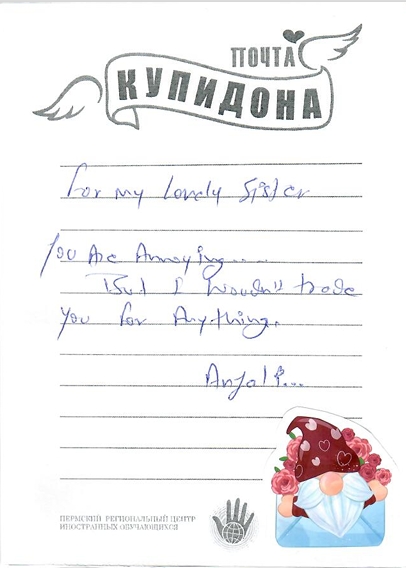 ПОЧТА
КУПИДОНА
For my lovely Sister
You Are Annoying.....
But I wouldn't trade
you for Anything.
Anjali...
ПЕРМСКИЙ РЕГИОНАЛЬНЫЙ ЦЕНТР
ИНОСТРАННЫХ ОБУЧАЮЩИХСЯ